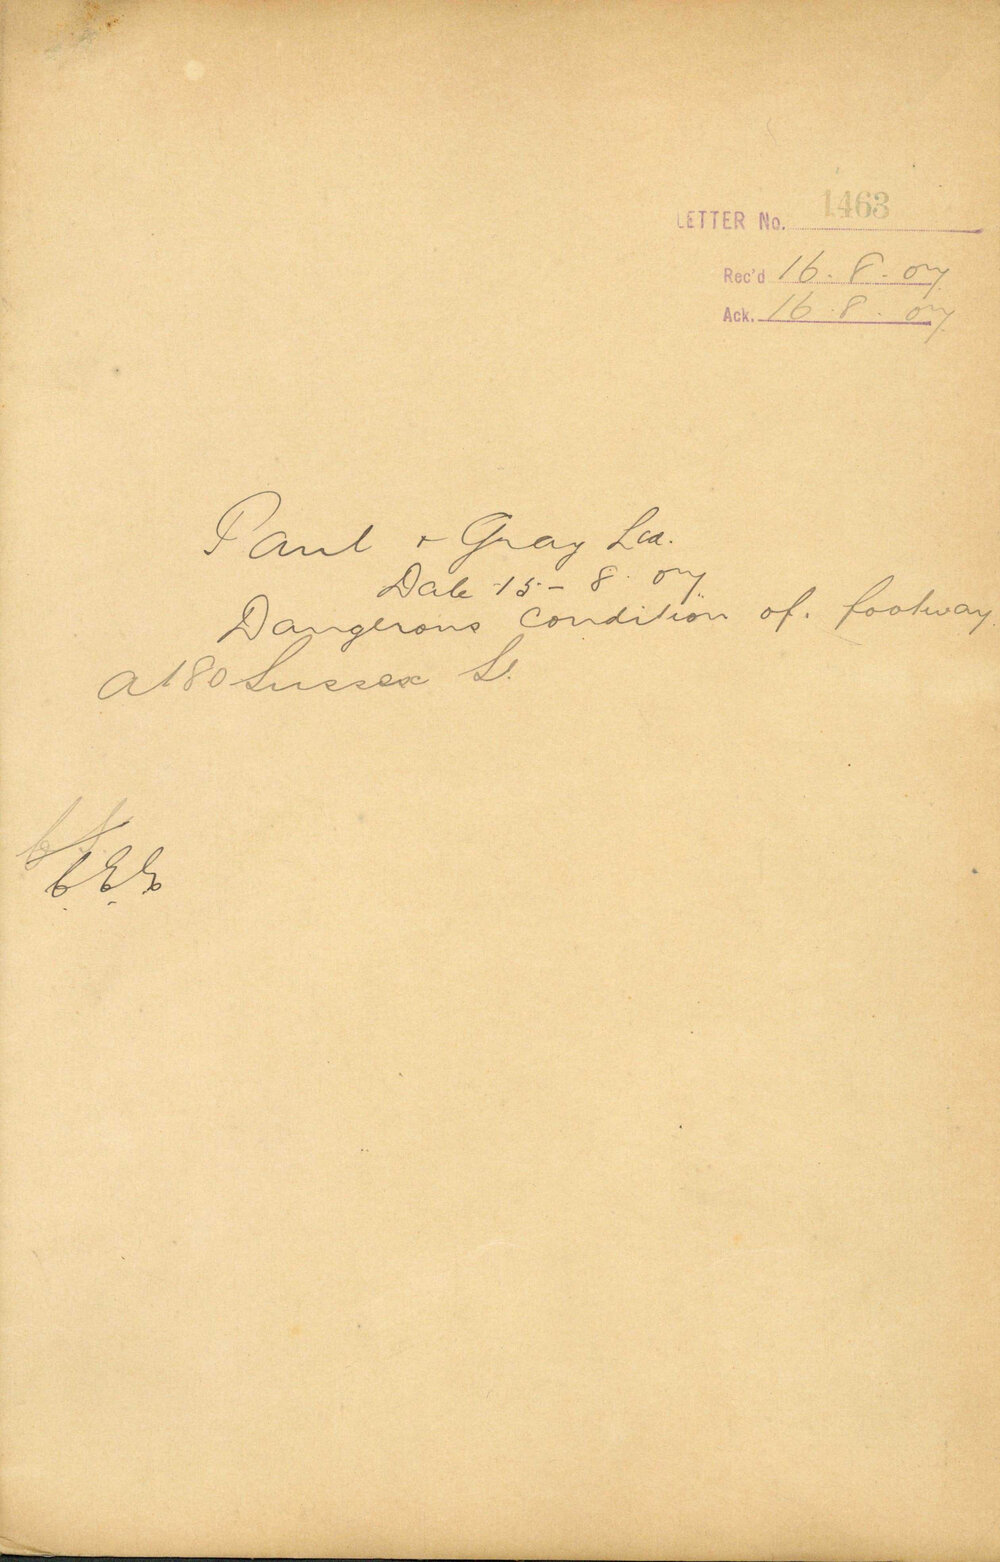 LETTER No. 1463
Rec'd 16. 8. 07
Ack. 16. 8. 07
Paul + Gray Ltd.
Date 15 - 8. 07
Dangerous condition of. footway.
At 80 Sussex St.